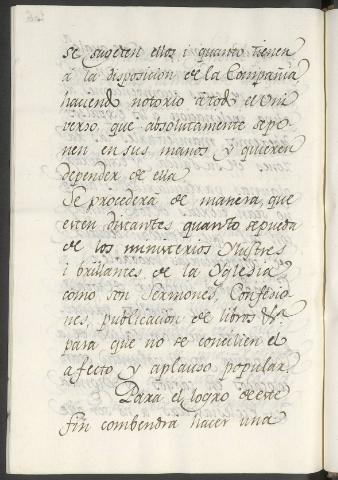 se sugeten ellos i quanto tienen
à la disposicion de la Compania
haciend notorio à tod el Uni
verso, que absolutamente sepo
nen en sus manos y quieren
depender de ella
Se procederà de manera, que
esten distantes quanto sepueda
de los ministerios Ylustres
i brillantes de la Yglesia
como son Sermones, Confesio
nes, publicacion de libros &ª
para que no se concilien el
afecto y aplauso popular.
Para el logro de este
fin combendra hacer una